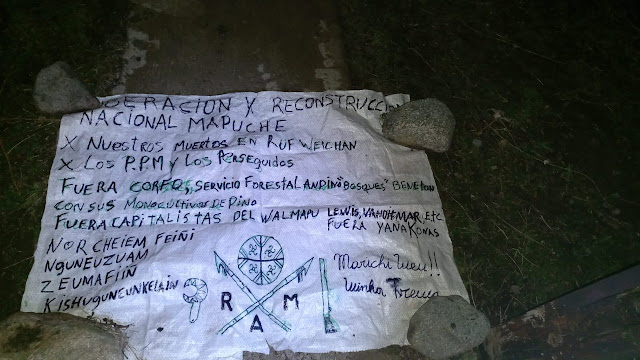 BERACION X RECONSTRUCCI
NACIONAL MAPUCHE
X NUESTROS MUERTOS EN RUF WEICHAN
X LOS P.P.M Y LOS PERSEGUIDOS
FUERA CORFO, SERVICIO FORESTAL ANDINO "BOSQUES" BENETTON
CON SUS MONOCULTIVOS DE PINO
FUERA CAPITALISTAS DEL WALMAPU LEWIS, VANDITMAR, ETC
FUERA YANAKONAS
NOR CHEIEM FEIÑI
NGUNEUZUAM
ZEUMAFIIÑ
KISHUGUNEUNKELAIN
R A M
Marichi Weu!!